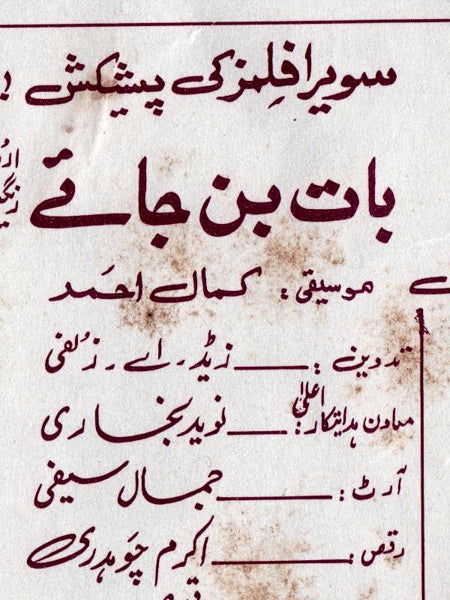 سویرا فلمز کی پیشکش
بات بن جائے
موسیقی: کمال احمد
تدوین: زیڈ۔اے۔زلفی
معاون ہدایتکار اعلیٰ: نوید بخاری
آرٹ: جمال سیفی
رقص: اکرم چوہدری